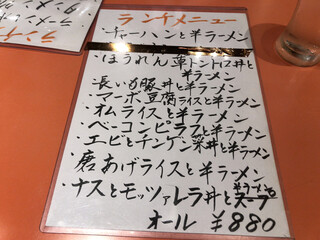 ランチメニュー
・チャーハンと半ラーメン
・ほうれん草トントロ丼と
半ラーメン
・長いも豚丼と半ラーメン
・マーボ豆腐ライスと半ラーメン
・オムライスと半ラーメン
・ベーコンピラフと半ラーメン
・エビとチンゲン菜丼と半ラーメン
・唐あげライスと半ラーメン
・ナスとモッツァレラ丼と半ラーメン
オール ¥880